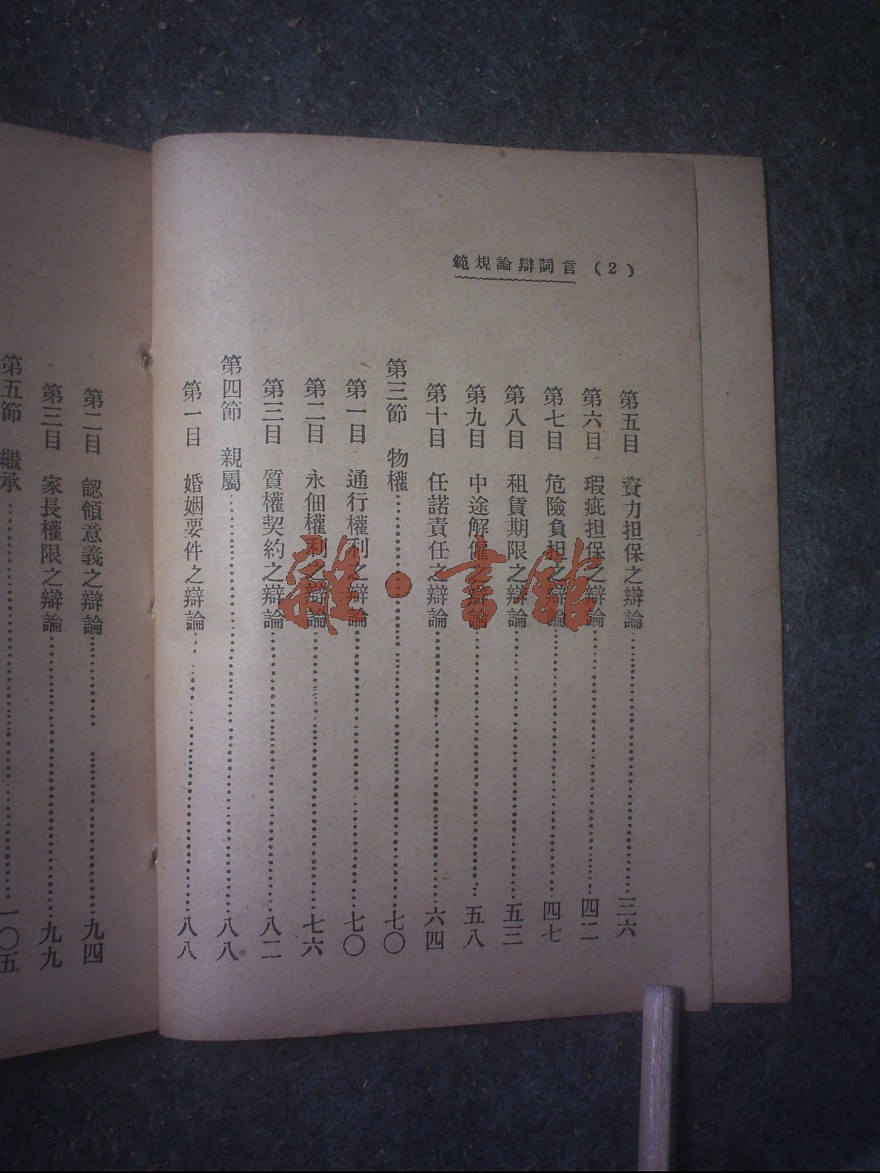 (2) 言詞辯論規範
第五目 資力担保之辯論 三六
第六目 瑕疵担保之辯論 四二
第七目 危險負担之辯論 四七
第八目 租賃期限之辯論 五三
第九目 中途解僱之辯論 五八
第十目 任諾責任之辯論 六四
第三節 物權 七〇
第一目 通行權利之辯論 七〇
第二目 永佃權利之辯論 七六
第三目 質權契約之辯論 八二
第四節 親屬 八八
第一目 婚姻要件之辯論 八八
第二目 認領意義之辯論 九四
第三目 家長權限之辯論 九九
第五節 繼承 一〇五
雜·書館